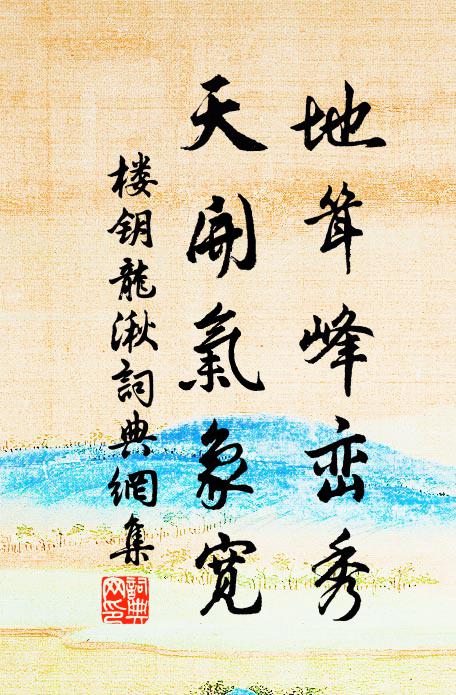 地耸峰峦秀
天開氣象寬
楼钥龍湫詞典網集
詞典網印